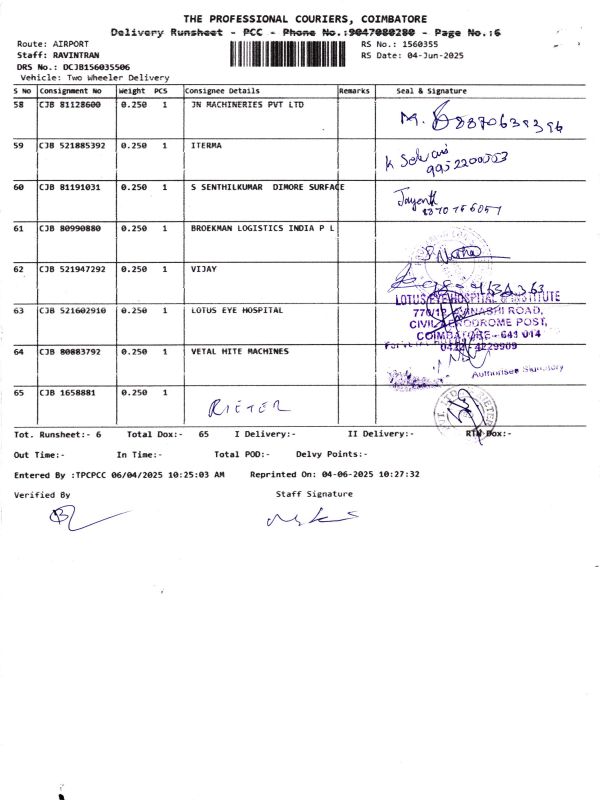 THE PROFESSIONAL COURIERS, COIMBATORE
Delivery Runsheet - PCC - Phone No.:9047080280 - Page No.:6
Route: AIRPORT
RS No.: 1560355
Staff: RAVINTRAN
RS Date: 04-Jun-2025
DRS No.: DCJB156035506
Vehicle: Two Wheeler Delivery
S No Consignment No Weight PCS Consignee Details Remarks Seal & Signature
58 CJB 81128600 0.250 1 JN MACHINERIES PVT LTD
59 CJB 521885392 0.250 1 ITERMA
9952200553
60 CJB 81191031 0.250 1 S SENTHILKUMAR DIMORE SURFACE
Jayanth
61 CJB 80990880 0.250 1 BROEKMAN LOGISTICS INDIA P L
62 CJB 521947292 0.250 1 VIJAY
63 CJB 521602910 0.250 1 LOTUS EYE HOSPITAL
LOTUS EYE HOSPITAL & INSTITUTE
770/12, AVINASHI ROAD,
CIVIL AERODROME POST,
COIMBATORE - 641 014
0422 - 4229909
64 CJB 80883792 0.250 1 VETAL HITE MACHINES
Authorised Signatory
65 CJB 1658881 0.250 1 RIETER
Tot. Runsheet:- 6 Total Dox:- 65 I Delivery:- II Delivery:- RTN Dox:-
Out Time:- In Time:- Total POD:- Delvy Points:-
Entered By :TPCPCC 06/04/2025 10:25:03 AM Reprinted On: 04-06-2025 10:27:32
Verified By Staff Signature